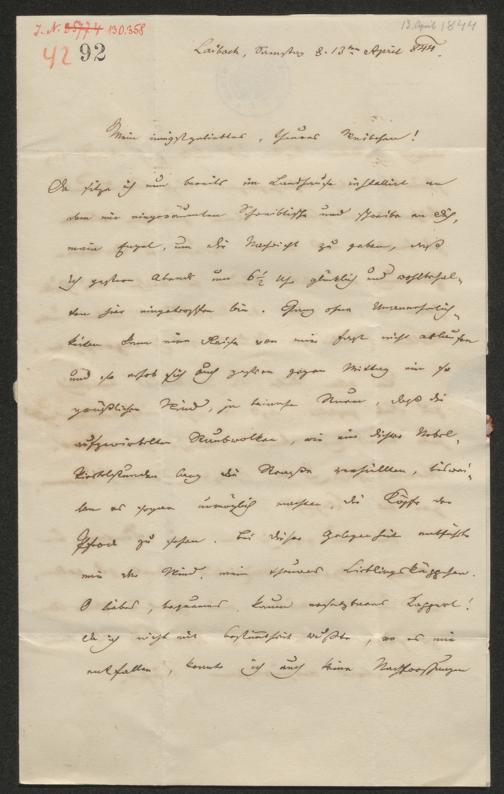 J. N. 35774 130.358
13. April 1844
42 92
Laibach, Samstag d. 13ten April 844.
Mein innigstgeliebtes, theures Weibchen!
Da sitze ich nun bereits im Landhause installirt an
dem mir eingeräumten Schreibtische und schreibe an Dich,
mein Engel, um dir Nachricht zu geben, daß
ich gestern Abends um 6 1/2 Uhr glücklich und wohlbehal-
ten hier eingetroffen bin. Ganz ohne Unannehmlich-
keiten kann eine Reise von mir fast nicht ablaufen
und so erhob sich auch gestern gegen Mittag ein so
gräußlicher Wind, ja beinahe Sturm, daß die
aufgewirbelten Staubwolken, wie ein dichter Nebel,
Viertelstunden lang die Strasse verhüllten, biswei-
len es sogar unmöglich machten, die Köpfe der
Pferde zu sehen. Bei dieser Gelegenheit entführte
mir der Wind, mein theures Lieblingskäppchen.
O liebes, bequemes, kaum ersetzbares Kapperl!
da ich nicht mit Bestimmtheit wußte, wo es mir
entfallen, konnte ich auch keine Nachforschungen